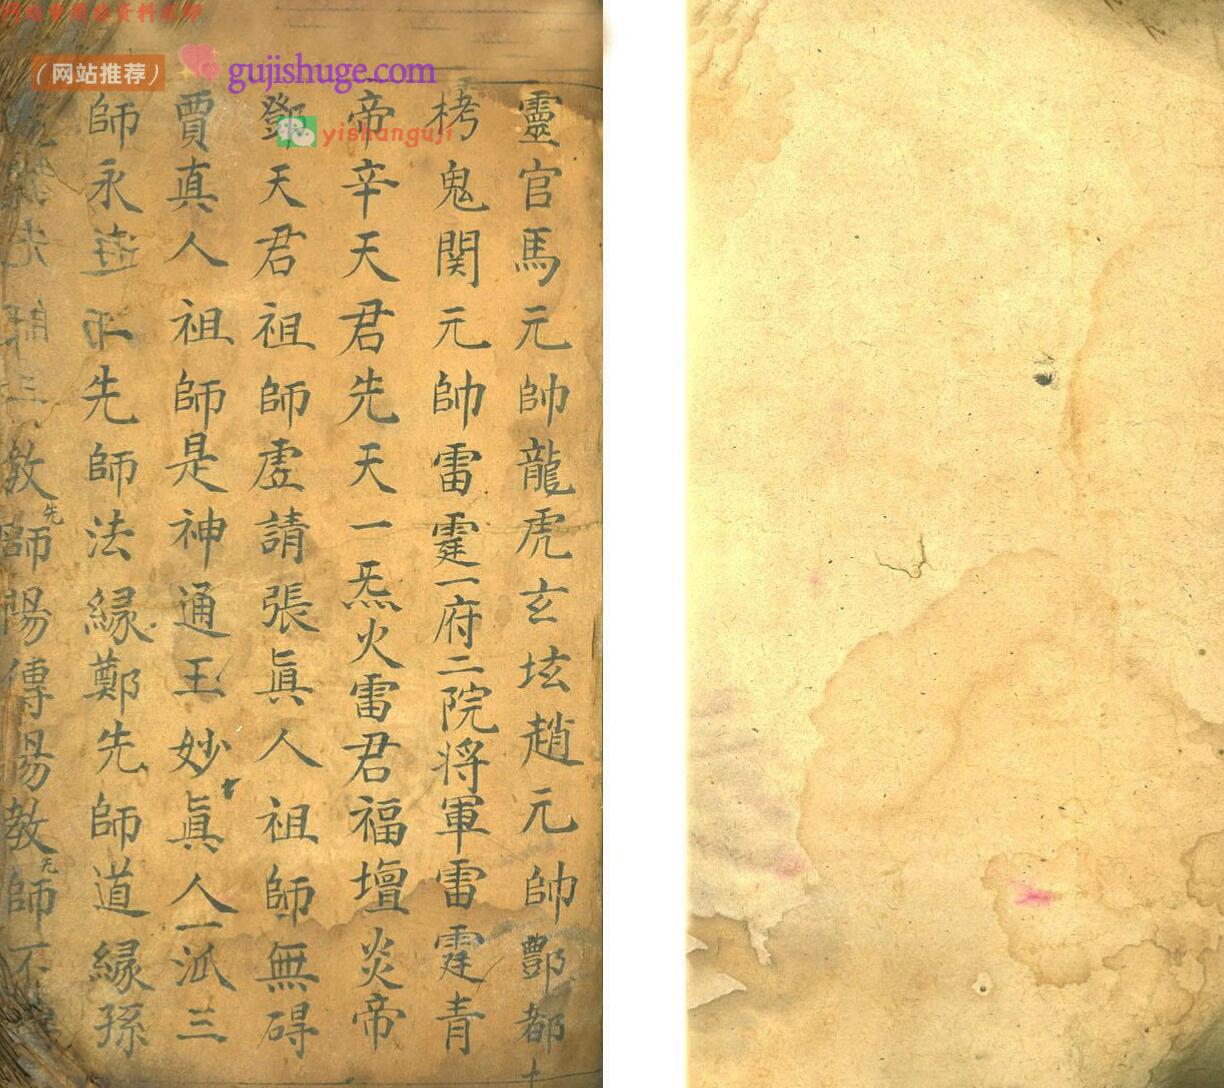 网站资料水印
（网站推荐）
gujishuge.com
yishanguji
靈官馬元帥龍虎玄坛趙元帥酆都十
栲鬼関元帥雷霆一府二院将軍雷霆青
帝辛天君先天一炁火雷君福壇炎帝
鄧天君祖師虚請張眞人祖師無碍
賈真人祖師是神通王妙眞人一派三
師永先師法縁鄭先師道縁孫
三教先師陽傳陽教先師不